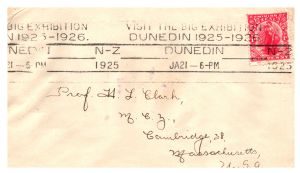 BIG EXHIBITION VISIT THE BIG EXHIBITION
N 1925-1926. DUNEDIN 1925-1926.
NEDIN N-Z DUNEDIN N-Z
21-6 PM 1925 JA21-6-PM 1925
Prof. H. L. Clark,
M. C. Z.,
Cambridge 38,
Massachusetts,
U.S.A.